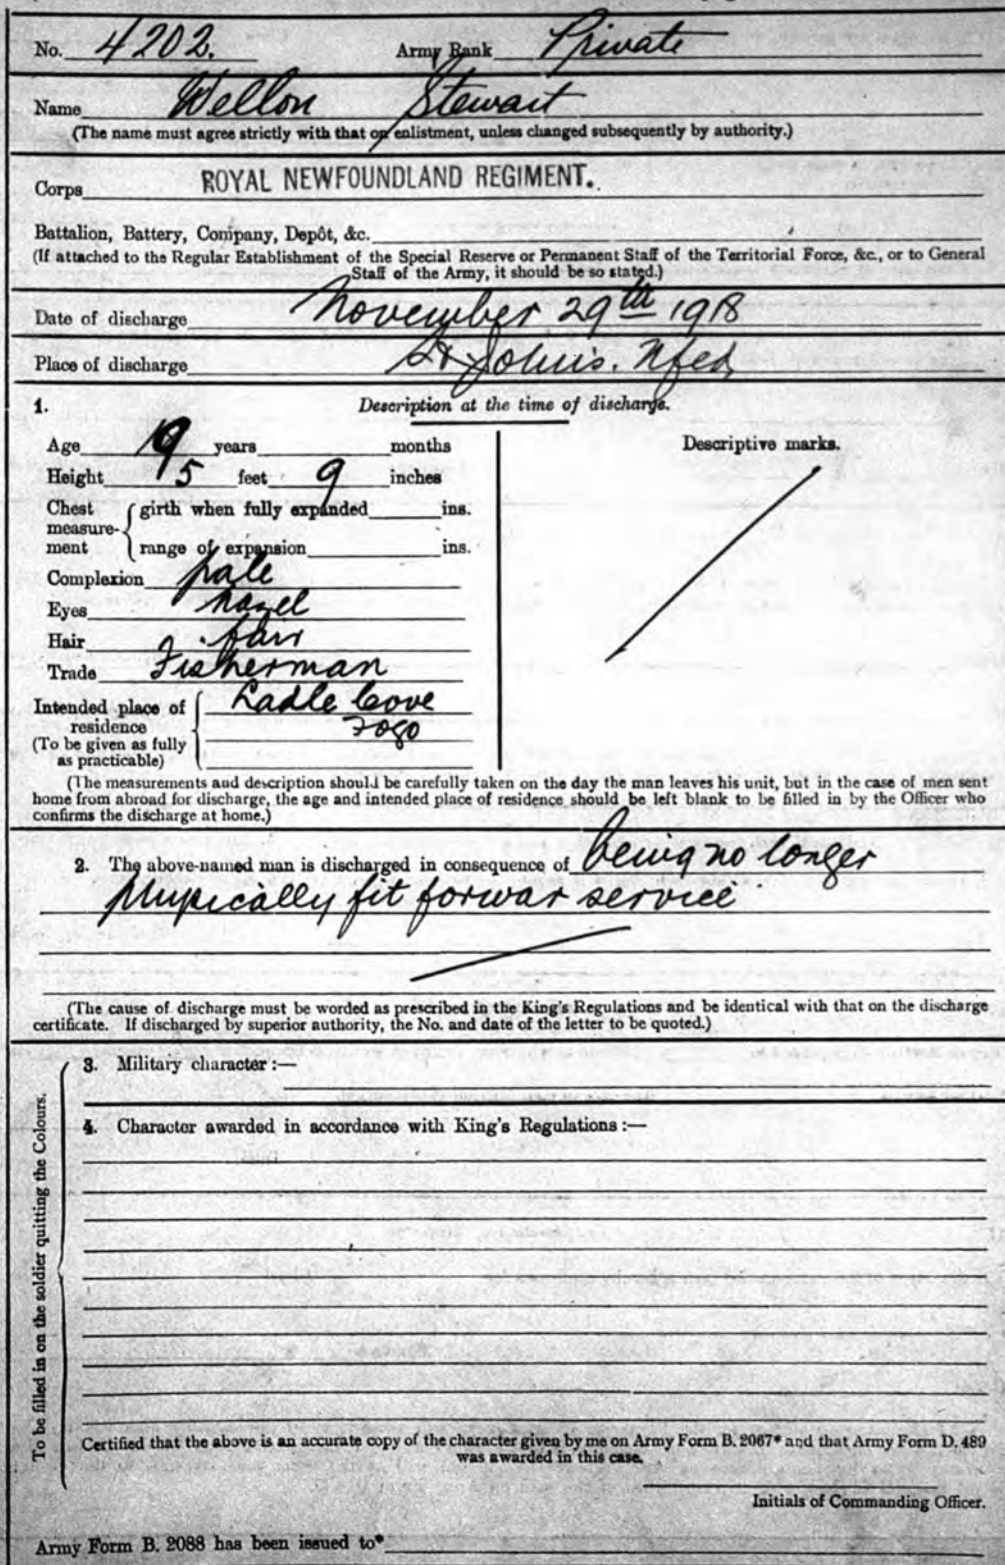 No. 4202. Army Rank Private
Name Wellon Stewart
(The name must agree strictly with that on enlistment, unless changed subsequently by authority.)
Corps ROYAL NEWFOUNDLAND REGIMENT.
Battalion, Battery, Company, Depôt, &c.
(If attached to the Regular Establishment of the Special Reserve or Permanent Staff of the Territorial Force, &c., or to General
Staff of the Army, it should be so stated.)
Date of discharge November 29th 1918
Place of discharge St John's. Nfld
1. Description at the time of discharge.
Age 19 years months
Height 5 feet 9 inches
Chest measure-ment { girth when fully expanded ins.
range of expansion ins.
Complexion pale
Eyes hazel
Hair fair
Trade Fisherman
Intended place of residence (To be given as fully as practicable) { Ladle Cove
Fogo
Descriptive marks.
(The measurements and description should be carefully taken on the day the man leaves his unit, but in the case of men sent
home from abroad for discharge, the age and intended place of residence should be left blank to be filled in by the Officer who
confirms the discharge at home.)
2. The above-named man is discharged in consequence of being no longer
physically fit for war service
(The cause of discharge must be worded as prescribed in the King's Regulations and be identical with that on the discharge
certificate. If discharged by superior authority, the No. and date of the letter to be quoted.)
To be filled in on the soldier quitting the Colours.
3. Military character :—
4. Character awarded in accordance with King's Regulations :—
Certified that the above is an accurate copy of the character given by me on Army Form B. 2067* and that Army Form D. 489
was awarded in this case.
Initials of Commanding Officer.
Army Form B. 2088 has been issued to*